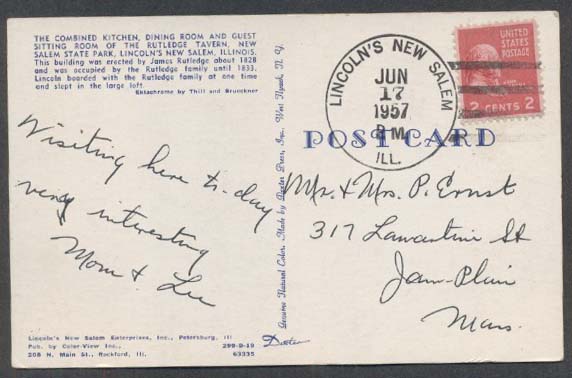 THE COMBINED KITCHEN, DINING ROOM AND GUEST
SITTING ROOM OF THE RUTLEDGE TAVERN, NEW
SALEM STATE PARK, LINCOLN'S NEW SALEM, ILLINOIS.
This building was erected by James Rutledge about 1828
and was occupied by the Rutledge family until 1833.
Lincoln boarded with the Rutledge family at one time
and slept in the large loft.
Ektachrome by Thill and Brueckner
Visiting here to-day
very interesting
Mom & Lu
Lincoln's New Salem Enterprises, Inc., Petersburg, Ill
Pub. by Color-View Inc., 299-D-19
208 N. Main St., Rockford, Ill. 63335
Genuine Natural Color, Made by Dexter Press, Inc., West Nyack, N. Y.
Dexter
LINCOLN'S NEW SALEM
JUN
17
1957
P.M.
ILL.
UNITED
STATES
POSTAGE
2 CENTS 2
POST CARD
Mr. & Mrs. P. Ernst
317 St
Jam-Plain
Mass.